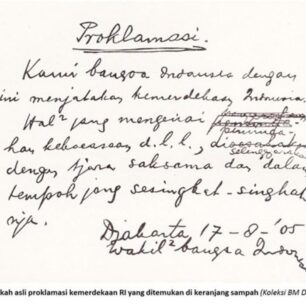 Proklamasi.
Kami bangsa Indonesia dengan
ini menjatakan kemerdekaan Indonesia
Hal² jang mengenai
peminda-
han kekoeasaan d.l.l.,
dengan tjara saksama dan dalam
tempoh jang sesingkat-singkat
nja.
Djakarta 17-8-'05
Wakil² bangsa Indon
kah asli proklamasi kemerdekaan RI yang ditemukan di keranjang sampah (Koleksi BM D